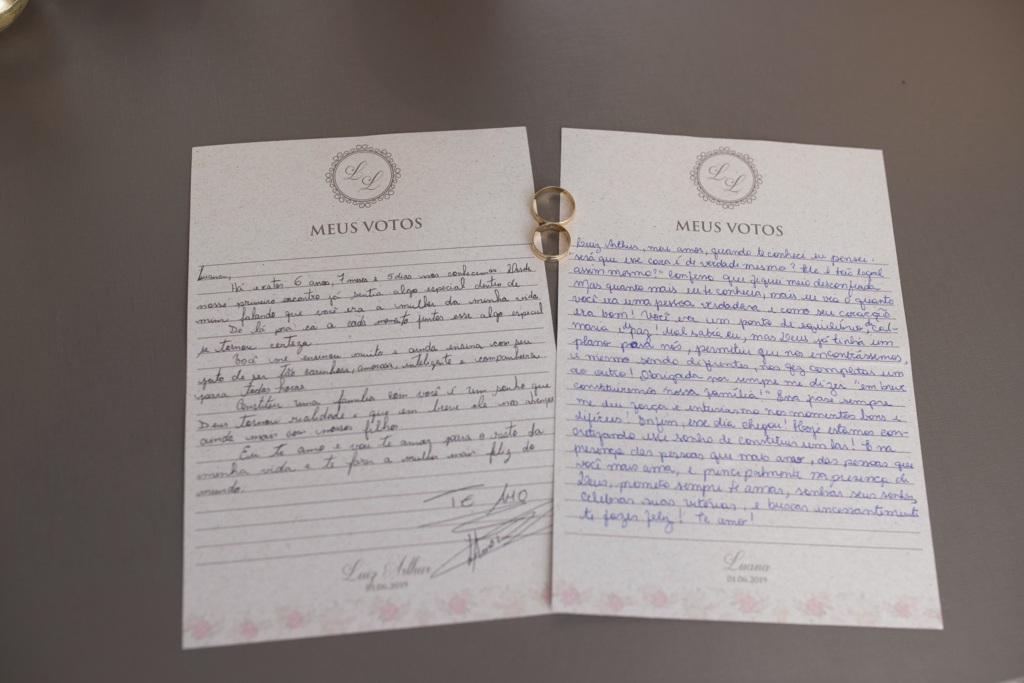 LL
MEUS VOTOS
Luana,
Há exatos 6 anos, 7 meses e 5 dias nos conhecemos. Desde
nosso primeiro encontro já sentia algo especial dentro de
mim falando que você era a mulher da minha vida
De lá pra cá a cada momento juntos esse algo especial
se tornou certeza.
Você me ensinou muito e ainda ensina com seu
jeito de ser tão carinhosa, amorosa, inteligente e companheira
para todas horas
Constituir uma família com você é um sonho que
Deus tornou realidade e que em breve ele nos abençoe
ainda mais com nossos filhos.
Eu te amo e vou te amar para o resto da
minha vida e te fazer a mulher mais feliz do
mundo.
TE AMO
Luiz Arthur
01.06.2019
LL
MEUS VOTOS
Luiz Arthur, meu amor, quando te conheci eu pensei:
"será que esse cara é de verdade mesmo? Ele é tão legal
assim mesmo?" Confesso que fiquei meio desconfiada.
Mas quanto mais eu te conhecia, mais eu via o quanto
você era uma pessoa verdadeira e como seu coração
era bom! Você era um ponto de equilíbrio, cal-
maria e paz! Mal sabia eu, mas Deus já tinha um
plano para nós, permitiu que nos encontrássemos,
e mesmo sendo diferentes, nos fez completar um
ao outro! Obrigada por sempre me dizer "em breve
constituiremos nossa família!" Essa frase sempre
me deu força e entusiasmo nos momentos bons e
difíceis! Enfim, esse dia chegou! Hoje estamos con-
cretizando esse sonho de constituir um lar! E na
presença das pessoas que mais amo, das pessoas que
você mais ama, e principalmente na presença de
Deus, prometo sempre te amar, sonhar seus sonhos,
celebrar suas vitórias, e buscar incessantemente
te fazer feliz! Te amo!
Luana
01.06.2019